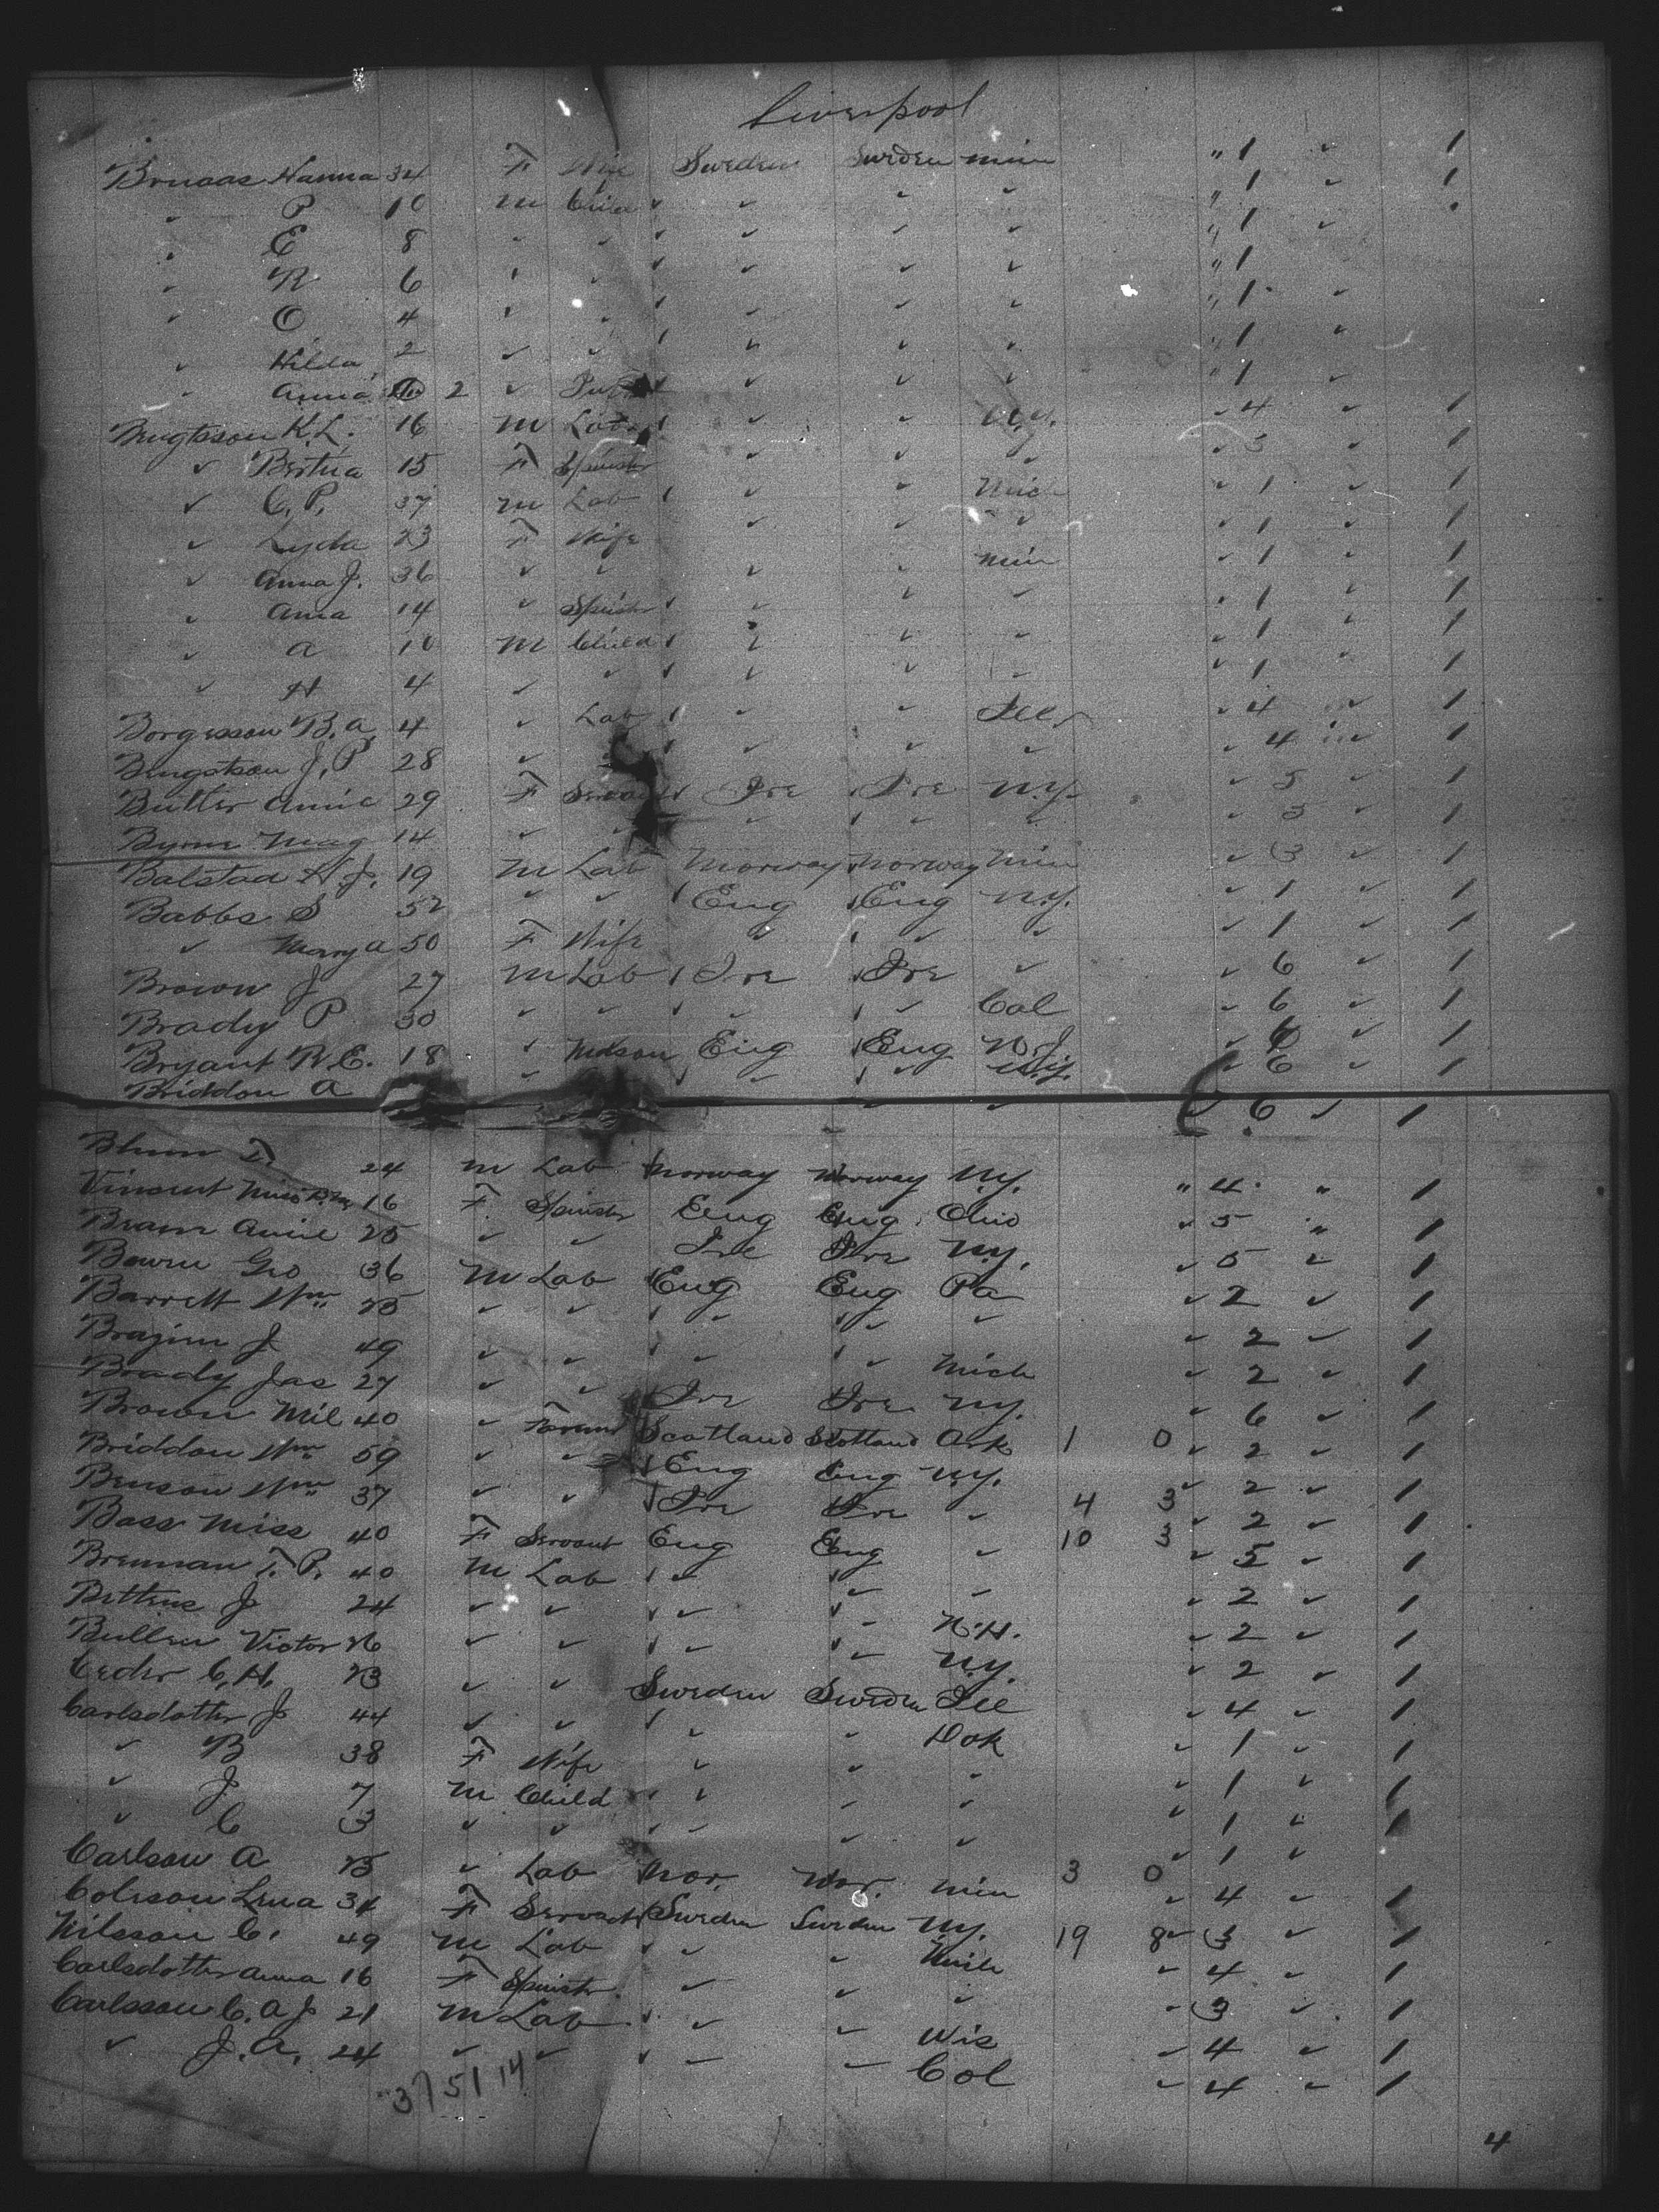 Liverpool
Hanna 34 F Wife Sweden Sweden Min " 1 ✓ 1
✓ P 10 M Child ✓ ✓ ✓ ✓ " 1 ✓ 1
✓ E 8 ✓ ✓ ✓ ✓ ✓ ✓ " 1 ✓
✓ R 6 ✓ ✓ ✓ ✓ ✓ ✓ " 1
✓ O 4 ✓ ✓ ✓ ✓ ✓ ✓ " 1 ✓
✓ Hilda 2 ✓ ✓ ✓ ✓ ✓ ✓ 1 ✓
✓ Anna 2 ✓ ✓ ✓ ✓ 1 ✓
Bengtsson K.L. 16 M Lab ✓ ✓ N.Y. ✓ 4 ✓ 1
✓ Bertha 15 F Spinster ✓ ✓ ✓ ✓ 3 ✓ 1
✓ C.P. 37 M Lab ✓ ✓ Mich ✓ 1 ✓ 1
✓ Lyda 23 F Wife ✓ ✓ ✓ ✓ 1 ✓ 1
✓ Anna J. 36 ✓ ✓ ✓ ✓ Min ✓ 1 ✓ 1
✓ Anna 14 ✓ Spinster ✓ ✓ ✓ ✓ 1 ✓ 1
✓ A 10 M Child ✓ ✓ ✓ ✓ 1 ✓ 1
✓ H 4 ✓ ✓ ✓ ✓ ✓ ✓ 1 ✓ 1
Borgesson B.A. 4 ✓ Lab ✓ ✓ Ill ✓ 4 ✓ 1
Bengtson J.P. 28 ✓ ✓ ✓ ✓ ✓ ✓ 4 ✓ 1
Butler Annie 29 F Servant Ire Ire N.Y. ✓ 5 ✓ 1
Byrne Mag 14 ✓ ✓ ✓ ✓ ✓ ✓ 3 ✓ 1
Balstad H.J. 19 M Lab Norway Norway Min ✓ 3 ✓ 1
Babbs S 52 ✓ ✓ Eng Eng N.Y. ✓ 1 ✓ 1
✓ Mary A 50 F Wife ✓ ✓ ✓ ✓ 1 ✓ 1
Brown J 27 M Lab Ire Ire ✓ ✓ 6 ✓ 1
Brady P 30 ✓ ✓ ✓ ✓ Col ✓ 6 ✓ 1
Bryant R.E. 18 ✓ Mason Eng Eng N.J. ✓ 6 ✓ 1
Briddon A ✓ ✓ ✓ N.Y. ✓ 6 ✓ 1
✓ ✓ ✓ 6 ✓ 1
Blum T. 24 M Lab Norway Norway N.Y. " 4 " 1
Vincent Miss 16 F Spinster Eng Eng Ohio ✓ 5 " 1
Annie 25 ✓ ✓ Ire Ire N.Y. ✓ 5 ✓ 1
Bowen Geo 36 M Lab Eng Eng Pa ✓ 2 ✓ 1
Barrett Wm 25 ✓ ✓ ✓ ✓ ✓ ✓ 2 ✓ 1
J 49 ✓ ✓ ✓ ✓ Mich ✓ 2 ✓ 1
Brady Jas 27 ✓ ✓ Ire Ire N.Y. ✓ 6 ✓ 1
Brown Mil 40 ✓ Scotland Scotland Ark 1 0 ✓ 2 ✓ 1
Briddon Wm 59 ✓ ✓ Eng Eng N.Y. ✓ 2 ✓ 1
Benson Wm 37 ✓ ✓ Ire Ire ✓ 4 3 ✓ 2 ✓ 1
Bass Miss 40 F Servant Eng Eng ✓ 10 3 ✓ 5 ✓ 1
Brennan T.P. 40 M Lab ✓ ✓ ✓ ✓ 2 ✓ 1
J 24 ✓ ✓ ✓ ✓ N.H. ✓ 2 ✓ 1
Bullen Victor 26 ✓ ✓ ✓ ✓ N.Y. ✓ 2 ✓ 1
Ceder C.H. 23 ✓ ✓ Sweden Sweden Ill ✓ 4 ✓ 1
Carlsdotter J 44 ✓ ✓ ✓ ✓ Dak ✓ 1 ✓ 1
✓ B 38 F Wife ✓ ✓ ✓ ✓ 1 ✓ 1
✓ J 7 M Child ✓ ✓ ✓ ✓ 1 ✓ 1
✓ C 3 ✓ ✓ ✓ ✓ ✓ ✓ 1 ✓
Carlson A 25 ✓ Lab Nor. Nor. Min 3 0 ✓ 4 ✓ 1
Lena 34 F Servant Sweden Sweden N.Y. 19 8 ✓ 3 ✓ 1
Nilsson C. 49 M Lab ✓ ✓ Mich ✓ 4 ✓ 1
Carlsdotter Anna 16 F Spinster ✓ ✓ ✓ ✓ 3 ✓ 1
Carlsson C.A.J 21 M Lab ✓ ✓ Wis ✓ 4 ✓ 1
✓ J.A. 24 ✓ ✓ ✓ ✓ Col ✓ 4 ✓ 1
37 51 14
4